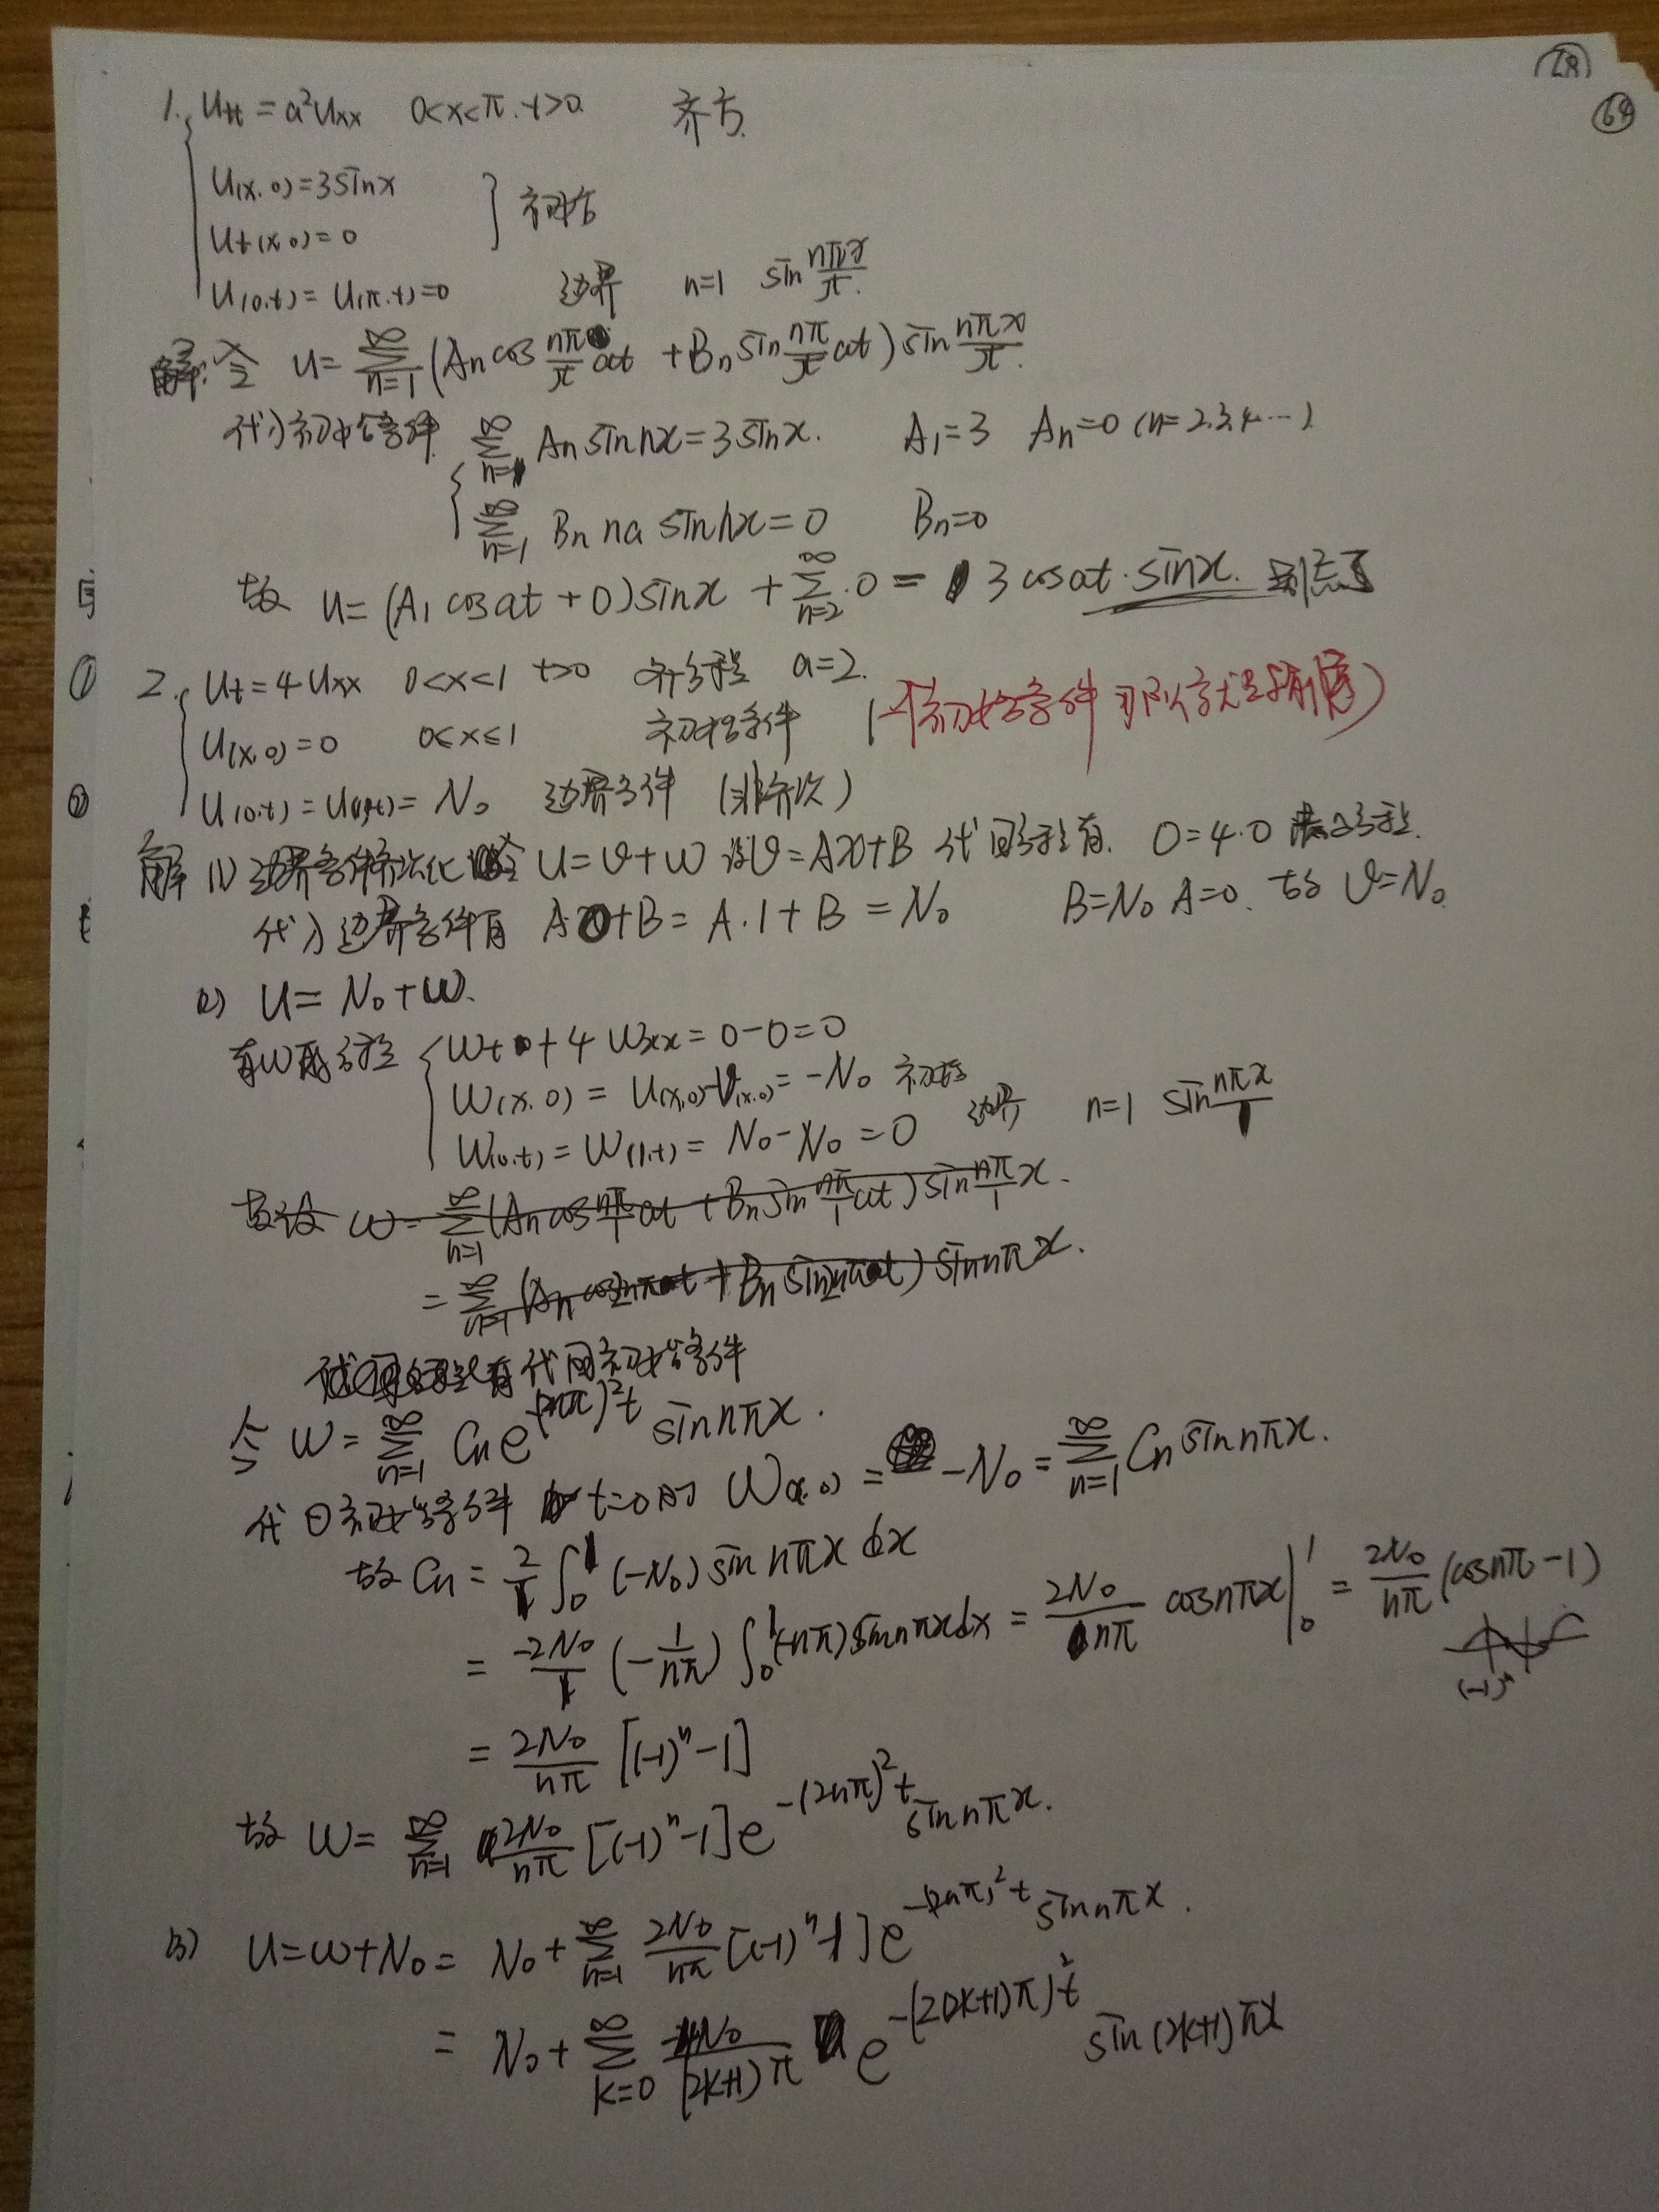 28
69
1. Utt = a²Uxx 0<x<π. t>0. 齐方.
U(x,0)=3sinx
Ut(x,0)=0 } 初始
U(0,t)=U(π,t)=0 边界 n=1 sin nπx/π.
解:令 U=∑_{n=1}^{∞}(An cos nπ/π at + Bn sin nπ/π at) sin nπx/π.
代入初始条件 ∑_{n=1}^{∞} An sin nx = 3sinx. A₁=3 An=0 (n=2.3.4…)
∑_{n=1}^{∞} Bn na sin nx = 0 Bn=0
故 U=(A₁ cos at + 0) sinx + ∑_{n=2}^{∞} 0 = 3 cos at · sinx. 别忘了
① 2. Ut = 4Uxx 0<x<1 t>0 齐方程 a=2.
U(x,0)=0 0≤x≤1 初始条件 (一个初始条件
② U(0,t)=U(1,t)=N₀ 边界条件 (非齐次)
解 (1) 边界条件齐次化 令 U=v+w 设v=Ax+B 代回方程有. 0=4·0 满足方程.
代入边界条件有 A·0+B=A·1+B=N₀ B=N₀ A=0. 故 v=N₀.
(2) U=N₀+w.
有w的方程 Wt+4Wxx=0-0=0
W(x,0)=U(x,0)-V(x,0)=-N₀ 初始
W(0,t)=W(1,t)=N₀-N₀=0 边界 n=1 sin nπx/1
故设 w=∑_{n=1}^{∞}(An cos nπ/1 at + Bn sin nπ/1 at) sin nπ/1 x.
=∑_{n=1}^{∞}(An cos2nπt + Bn sin2nπt) sin nπx.
代回初始条件
令 W=∑_{n=1}^{∞} Cn e^{-(2nπ)²t} sin nπx.
代回初始条件 t=0时 W(x,0)= -N₀=∑_{n=1}^{∞} Cn sin nπx.
故 Cn=2/1 ∫₀¹ (-N₀) sin nπx dx
= -2N₀/1 (-1/nπ) ∫₀¹ (-nπ) sin nπx dx = 2N₀/nπ cos nπx |₀¹ = 2N₀/nπ (cos nπ -1)
(-1)ⁿ
= 2N₀/nπ [(-1)ⁿ-1]
故 W=∑_{n=1}^{∞} 2N₀/nπ [(-1)ⁿ-1] e^{-(2nπ)²t} sin nπx.
(3) U=w+N₀=N₀+∑_{n=1}^{∞} 2N₀/nπ [(-1)ⁿ-1] e^{-(2nπ)²t} sin nπx.
= N₀+∑_{k=0}^{∞} -4N₀/(2k+1)π e^{-(2(2k+1)π)²t} sin(2k+1)πx